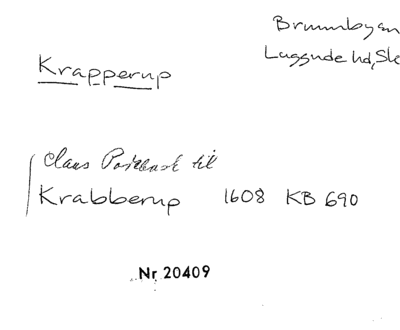 Brunnbyen
Luggude hd, Sk
Krapperup
Claus Podebusk til
Krabberup 1608 KB 690
Nr 20409